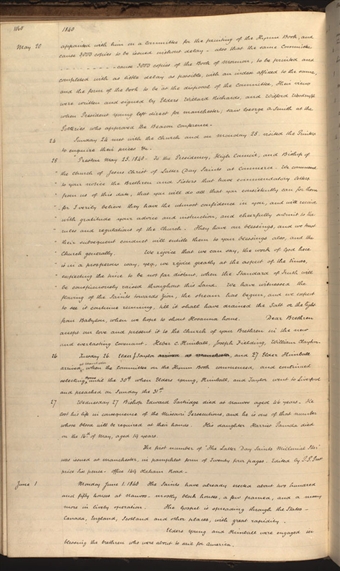 1840
May 22 appointed with him as a Committee for the printing of the Hymn Book, and
cause 3000 copies to be issued without delay. also that the same Committee
cause 5000 copies of the Book of Mormon, to be printed and
completed with as little delay as possible, with an index affixed to the same,
and the form of the book to be at the disposal of the Committee. Their views
were written and signed by Elders Willard Richards, and
when President Young left direct for Manchester; saw George A. Smith at the
Potteries who approved the
24 Sunday 24 met with the Church and on Monday 25 visited the
to
" Preston May 25. 1840. To the Presidency, High Council, and Bishop of
" the Church of Jesus Christ of Latter Day Saints at Commerce. We commend
" to your notice the Brethren and Sisters that have commendatory letters
" from us of this date, that you will do all that you consistently can for them
" for I verily believe they have the utmost confidence in you, and will receive
" with gratitude your advice and instruction, and cheerfully submit to the
" rules and regulations of the Church. They have our blessings, and we trust
" their subsequent conduct will entitle them to your blessings also, and the
" Church generally. We rejoice that we can say, the work of God here
" is in a prosperous way, yes, we rejoice greatly at the aspect of the times,
" expecting the time to be not far distant, when the Standard of Truth will
" be conspicuously raised throughout this Land. We have witnessed the
" flowing of the Saints towards Zion, the stream has begun, and we expect
" to see it continue running, till it shall have drained the Salt or the light
" from Babylon, when we hope to shout Hosanna home. Dear Brethren
" accept our love and present it to the Church of your Brethren in the new
" and everlasting Covenant. Heber C. Kimball, Joseph Fielding, William Clayton.
26 26 Elder J. Taylor arrived at Manchester, and 27 Elder Kimball
arrived, when the Committee on the Hymn Book commenced, and continued
selecting Hymns until the 30th when Elders Young, Kimball, and Taylor went to Liverpool
and preached on Sunday the 31st
27 Wednesday 27 Bishop Edward Partridge died at Nauvoo aged 46 years. He
lost his life in consequence of the Missouri Persecutions, and he is one of that number
whose blood will be required at their hands. His daughter Harriet died
on the 16th of May, aged 19 years.
The first number of "The Latter Day Saints Millennial Star"
was issued at Manchester, in pamphlet form of Twenty four pages. Edited by P. P. Pratt
price six pence. Office 149 Oldham Road.
June 1 Monday June 1. 1840 The Saints have already erected about two hundred
and fifty houses at Nauvoo. mostly block houses, a few framed, and a many
more in lively operation. The Gospel is spreading through the States.
Canada, England, Scotland and other places, with great rapidity.
Elders Young and Kimball were engaged in
blessing the brethren who were about to sail for America.